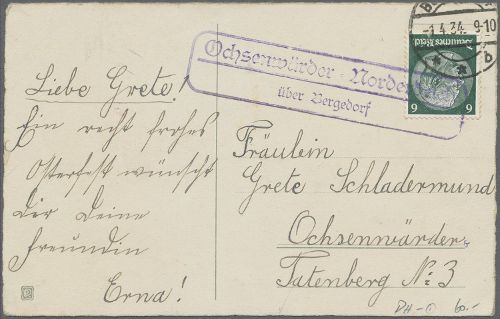 Liebe Grete!
Ein recht frohes
Osterfest wünscht
Dir Deine
Freundin
Erna!
Ochsenwärder - Norder
über Bergedorf
-1.4.34. 9-10
b
Deutsches Reich
6 6
Fräulein
Grete Schladermund
Ochsenwärder
Tatenberg No. 3
60.-